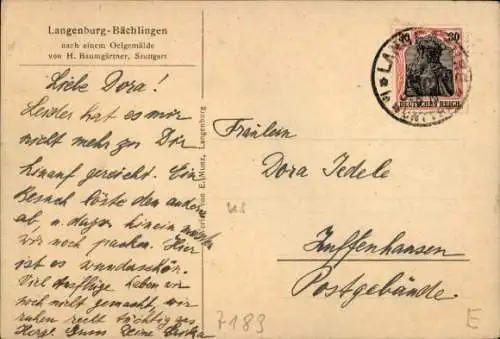 Langenburg-Bächlingen
nach einem Oelgemälde
von H. Baumgärtner, Stuttgart
Liebe Dora!
Leider hat es mir
nicht mehr zu Dir
hinauf gereicht. Ein
Besuch löste den andern
ab, u. dazu hinein mußten
wir noch packen. Hier
ist es wunderschön.
Viel Ausflüge haben wir
noch nicht gemacht, wir
ruhen recht tüchtig aus.
Herzl. Deine
von E. Munz, Langenburg
30
DEUTSCHES REICH
LANG
Fräulein
Dora Jedele
Zuffenhausen
Postgebäude.
7189
E